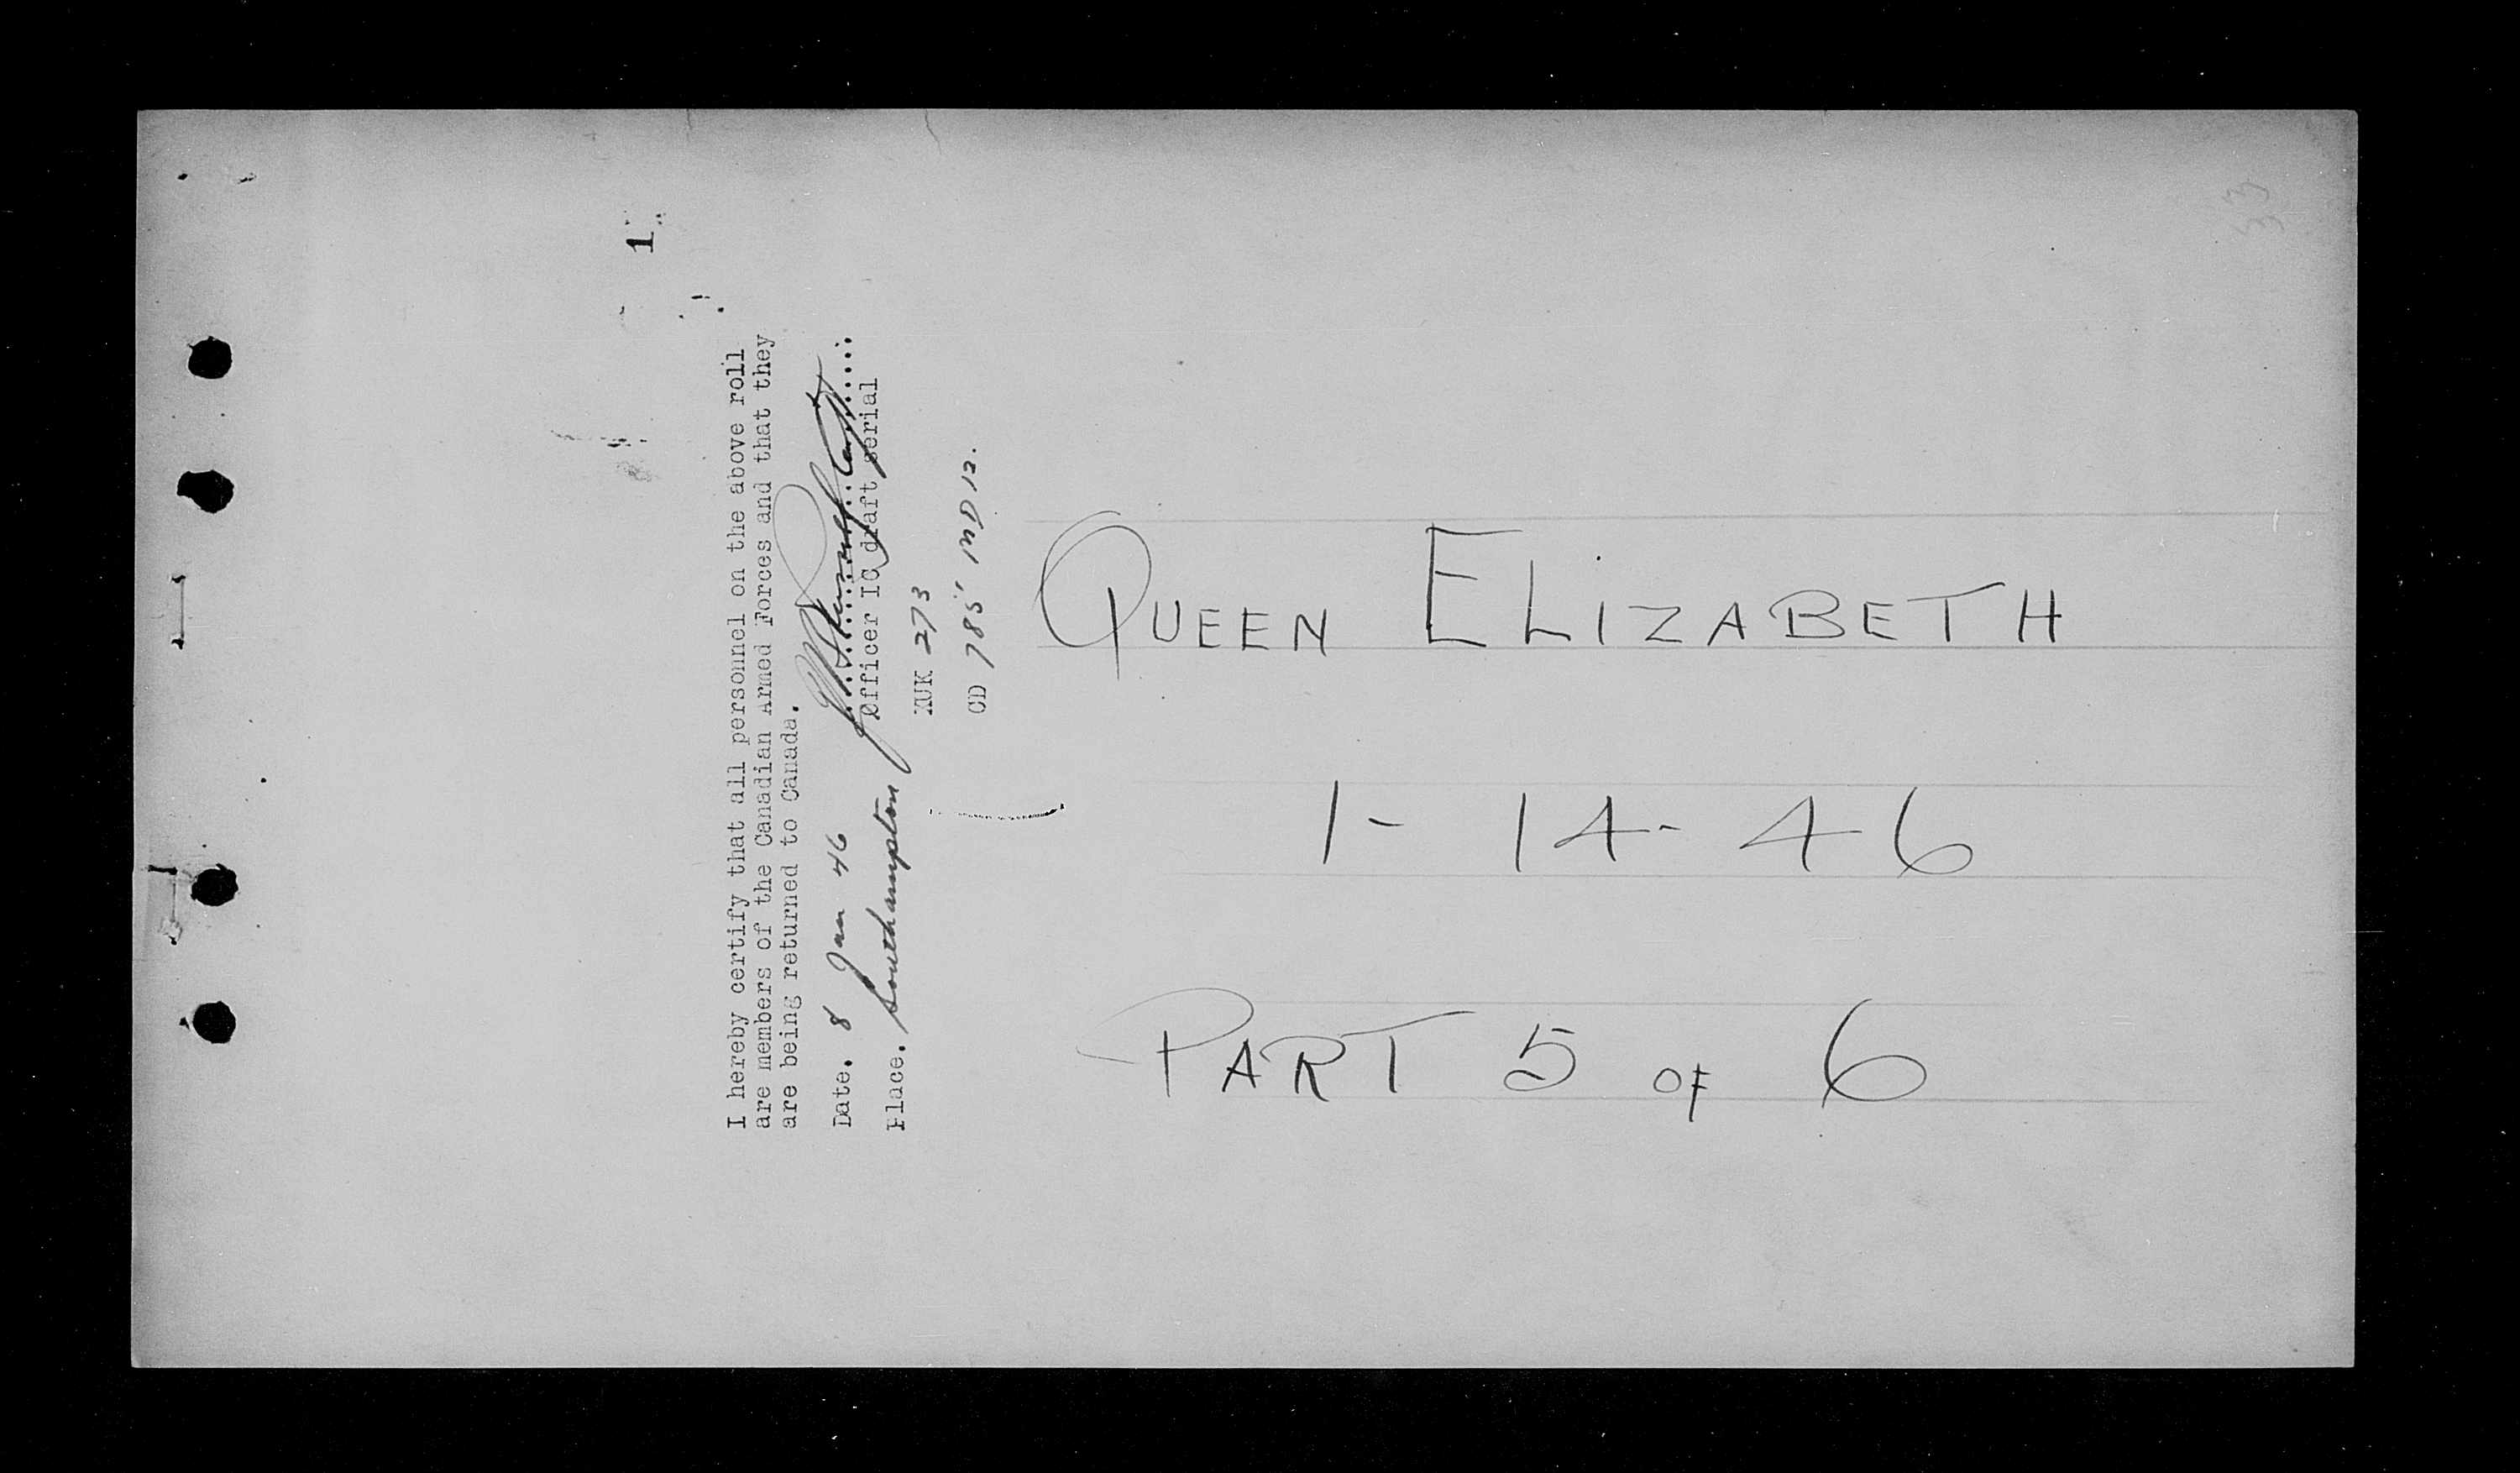 1
I hereby certify that all personnel on the above roll
are members of the Canadian Armed Forces and that they
are being returned to Canada.
Date. 8 Jan 46
Officer IC draft serial
Place. Southampton
MUK 273
CD 785 MD 12.
QUEEN ELIZABETH
1- 14- 46
PART 5 OF 6
33